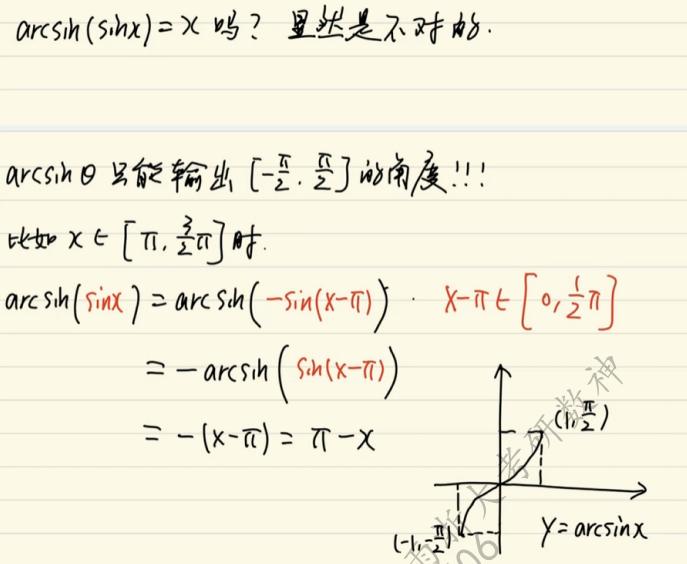 arcsin(sinx)=x 吗? 显然是不对的.
arcsinθ 只能输出 [-π/2, π/2] 的角度!!!
比如 x∈[π, 3/2π] 时.
arcsin(sinx) = arcsin(-sin(x-π)) · x-π∈[0, 1/2π]
= -arcsin(sin(x-π))
= -(x-π) = π-x
(1, π/2)
(-1, -π/2)
y=arcsinx
浙大考研数神
06